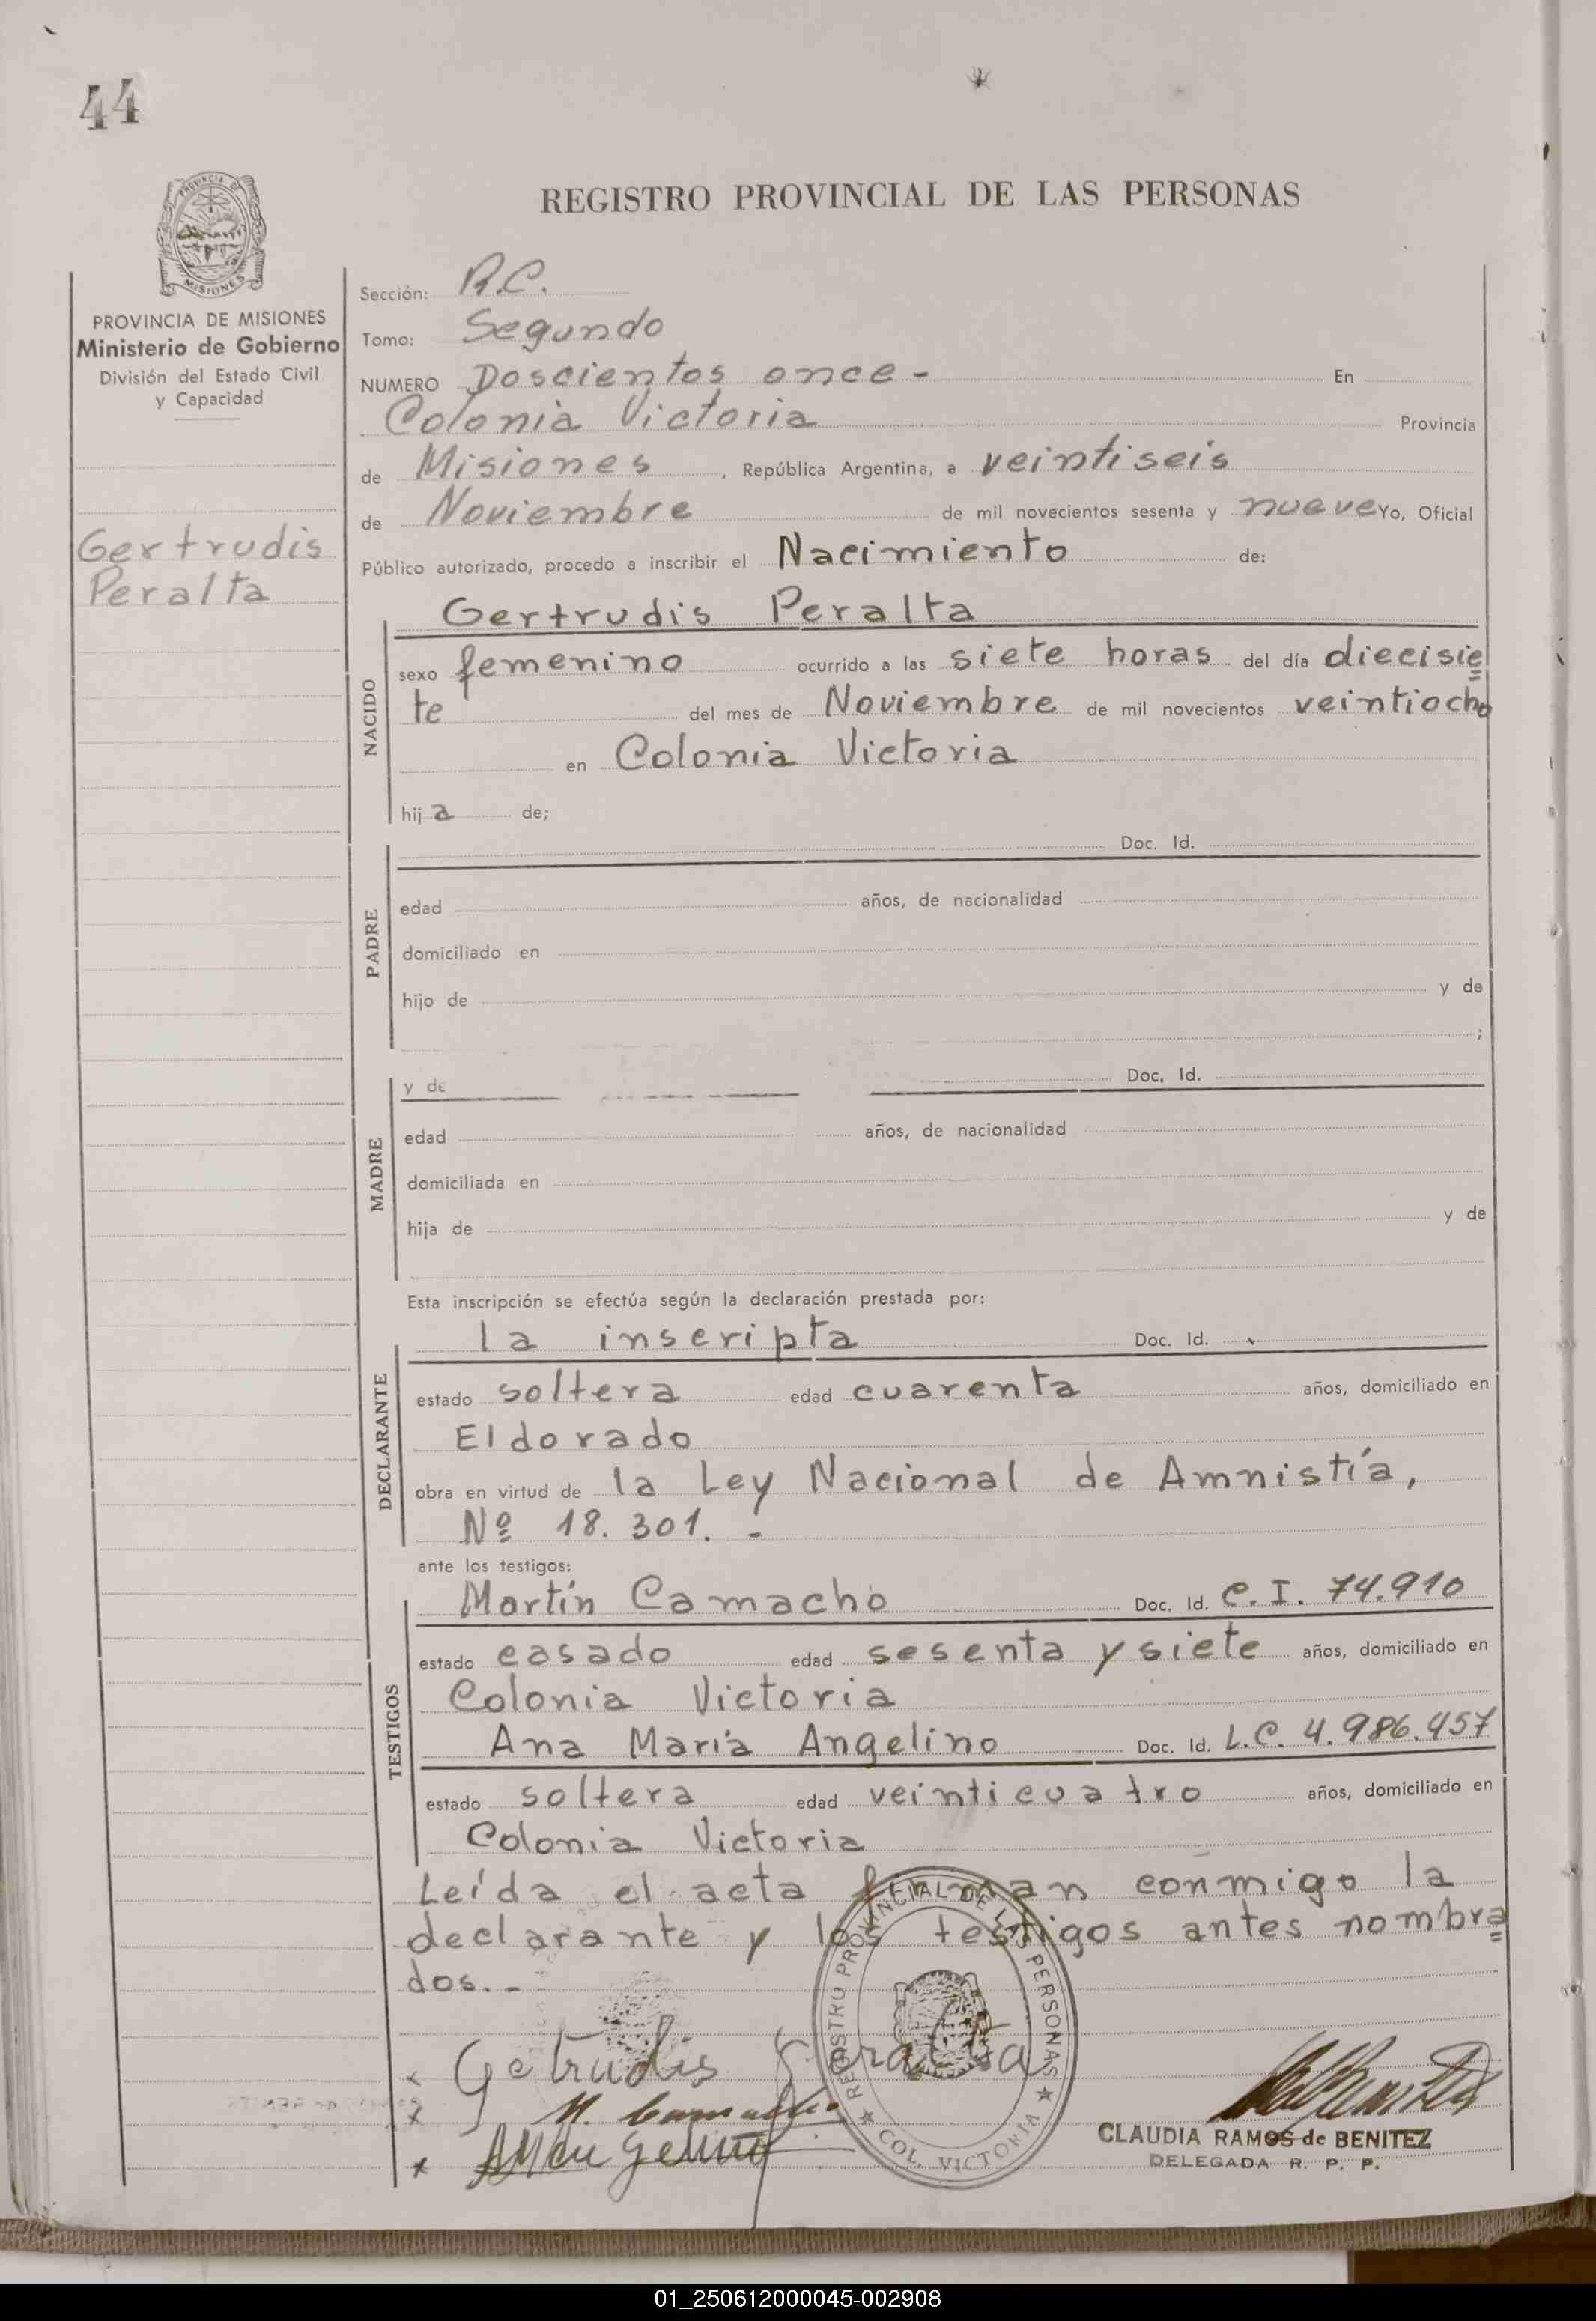 44
REGISTRO PROVINCIAL DE LAS PERSONAS
PROVINCIA DE MISIONES
Ministerio de Gobierno
División del Estado Civil
y Capacidad
Gertrudis
Peralta
Sección: R.C.
Tomo: Segundo
NUMERO Doscientos once - En
Colonia Victoria Provincia
de Misiones, República Argentina, a veintiseis
de Noviembre de mil novecientos sesenta y nueve Yo, Oficial
Público autorizado, procedo a inscribir el Nacimiento de:
NACIDO
Gertrudis Peralta
sexo femenino ocurrido a las siete horas del día diecisie
te del mes de Noviembre de mil novecientos veintiocho
en Colonia Victoria
hija de;
PADRE
Doc. Id.
edad años, de nacionalidad
domiciliado en
hijo de y de
;
MADRE
y de Doc. Id.
edad años, de nacionalidad
domiciliada en
hija de y de
Esta inscripción se efectúa según la declaración prestada por:
DECLARANTE
la inscripta Doc. Id.
estado soltera edad cuarenta años, domiciliado en
Eldorado
obra en virtud de la Ley Nacional de Amnistía,
Nº 18.301. -
ante los testigos:
TESTIGOS
Martín Camacho Doc. Id. C.I. 74.910
estado casado edad sesenta y siete años, domiciliado en
Colonia Victoria
Ana María Angelino Doc. Id. L.C. 4.986.457
estado soltera edad veinticuatro años, domiciliado en
Colonia Victoria
Leída el acta firman conmigo la
declarante y los testigos antes nombra
dos. -
Getrudis Peralta
M. Camacho
AMAngelino
REGISTRO PROVINCIAL DE LAS PERSONAS
COL. VICTORIA
CLAUDIA RAMOS de BENITEZ
DELEGADA R. P. P.
01_250612000045-002908